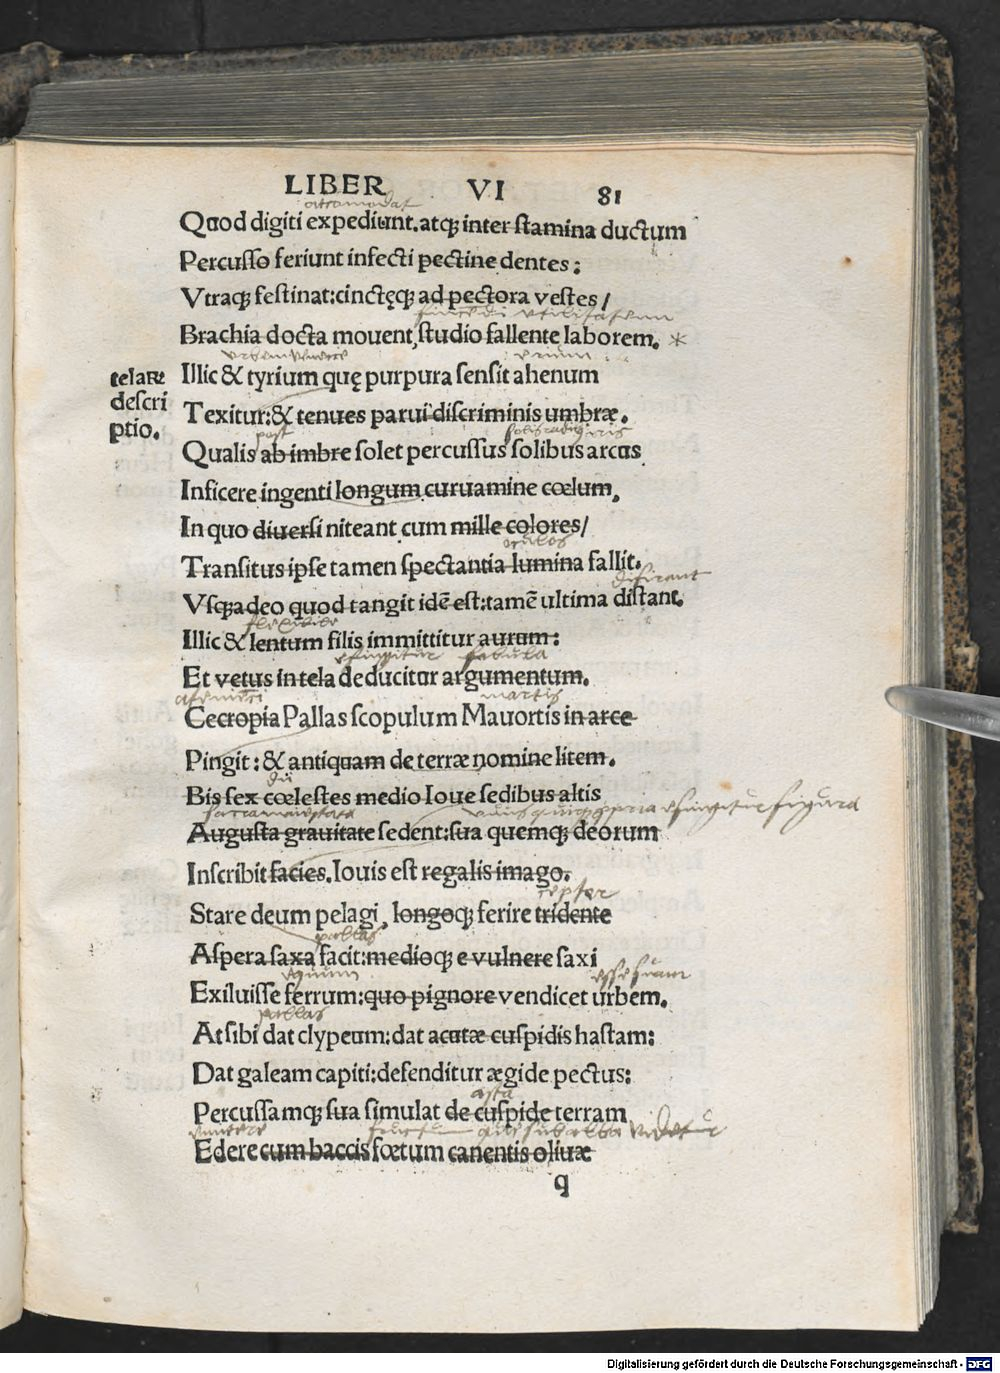 LIBER VI 81
Quod digiti expediunt.atqꝫ inter stamina ductum
Percusso feriunt infecti pectine dentes:
Vtraqꝫ festinat:cinctęqꝫ ad pectora vestes/
Brachia docta mouent,studio fallente laborem. *
telaꝝ
descri
ptio.
Illic & tyrium quę purpura sensit ahenum
Texitur:& tenues parui discriminis umbræ.
post
Qualis ab imbre solet percussus solibus arcus
Inficere ingenti longum curuamine cœlum,
In quo diuersi niteant cum mille colores/
oculos
Transitus ipse tamen spectantia lumina fallit.
Vsqꝫadeo quod tangit idē est:tamē ultima distant.
Illic & lentum filis immittitur aurum:
effingitur fabula
Et vetus in tela deducitur argumentum.
martis
Cecropia Pallas scopulum Mauortis in arce
Pingit:& antiquam de terræ nomine litem.
dii
Bis sex cœlestes medio Ioue sedibus altis
effingitur figura
Augusta grauitate sedent:sua quemqꝫ deorum
Inscribit facies.Iouis est regalis imago.
Stare deum pelagi, longoqꝫ ferire tridente
pallas
Aspera saxa facit:medioqꝫ e vulnere saxi
equum esse suam
Exiluisse ferrum:quo pignore vendicet urbem.
pallas
At sibi dat clypeum:dat acutæ cuspidis hastam:
Dat galeam capiti:defenditur ægide pectus:
asta
Percussamqꝫ sua simulat de cuspide terram
Edere cum baccis fœtum canentis oliuæ
q
Digitalisierung gefördert durch die Deutsche Forschungsgemeinschaft - DFG